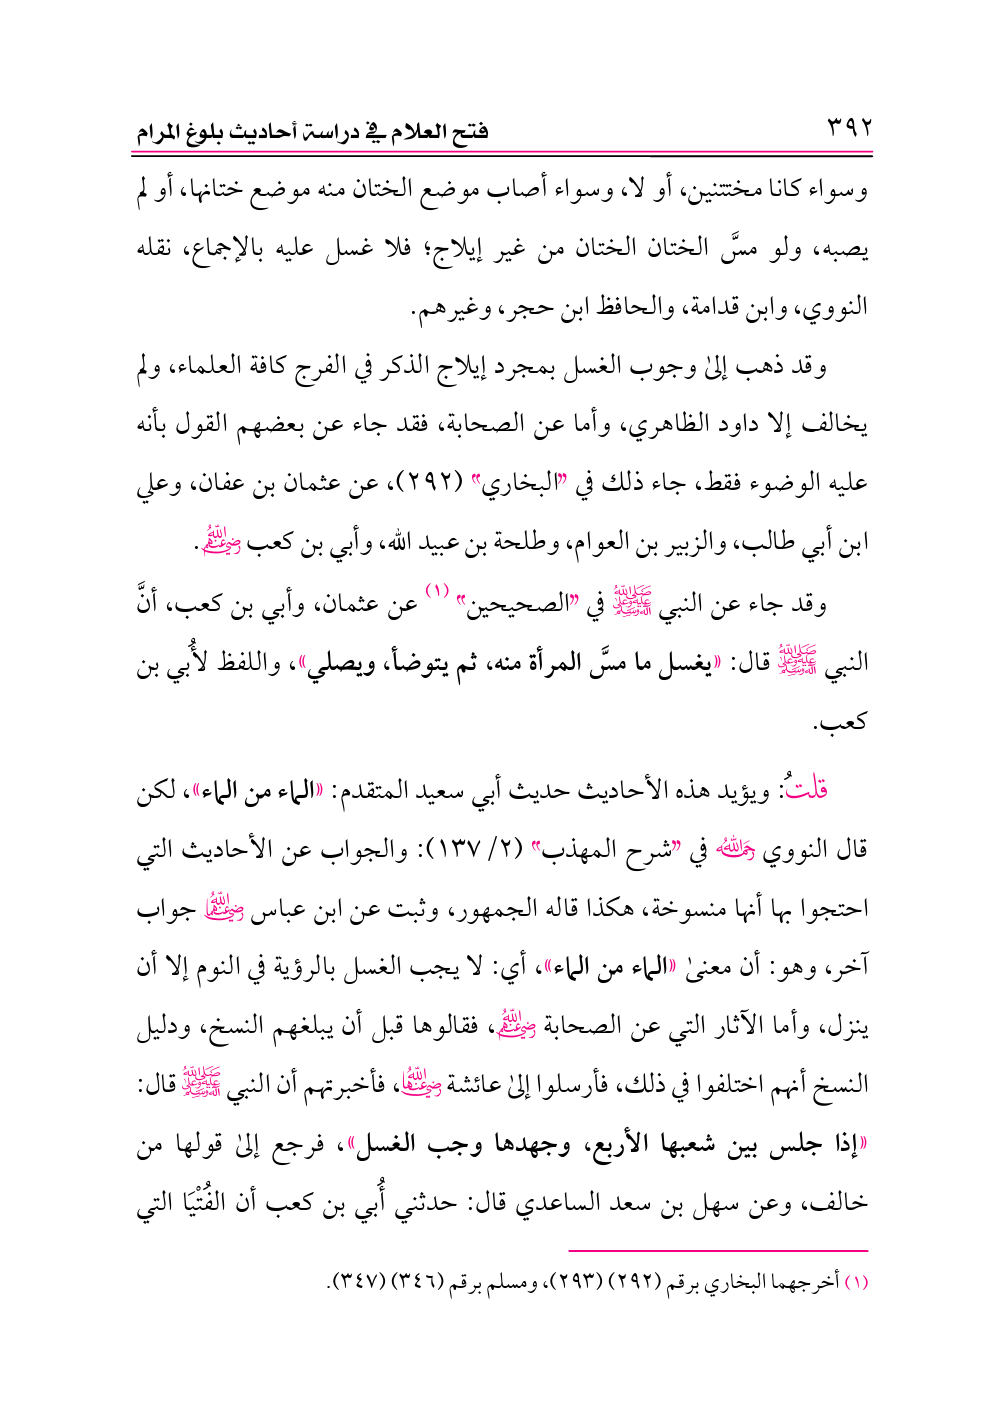 ٣٩٢
فتح العلام في دراسة أحاديث بلوغ المرام
وسواء كانا مختتنين، أو لا، وسواء أصاب موضع الختان منه موضع ختانها، أو لم
يصبه، ولو مسَّ الختان الختان من غير إيلاج؛ فلا غسل عليه بالإجماع، نقله
النووي، وابن قدامة، والحافظ ابن حجر، وغيرهم.
وقد ذهب إلىٰ وجوب الغسل بمجرد إيلاج الذكر في الفرج كافة العلماء، ولم
يخالف إلا داود الظاهري، وأما عن الصحابة، فقد جاء عن بعضهم القول بأنه
عليه الوضوء فقط، جاء ذلك في "البخاري" (٢٩٢)، عن عثمان بن عفان، وعلي
ابن أبي طالب، والزبير بن العوام، وطلحة بن عبيد الله، وأبي بن كعب رضي الله عنهم.
وقد جاء عن النبي ﷺ في "الصحيحين" (١) عن عثمان، وأبي بن كعب، أنَّ
النبي ﷺ قال: «يغسل ما مسَّ المرأة منه، ثم يتوضأ، ويصلي»، واللفظ لأُبي بن
كعب.
قلتُ: ويؤيد هذه الأحاديث حديث أبي سعيد المتقدم: «الماء من الماء»، لكن
قال النووي رحمه الله في "شرح المهذب" (٢/ ١٣٧): والجواب عن الأحاديث التي
احتجوا بها أنها منسوخة، هكذا قاله الجمهور، وثبت عن ابن عباس رضي الله عنهما جواب
آخر، وهو: أن معنىٰ «الماء من الماء»، أي: لا يجب الغسل بالرؤية في النوم إلا أن
ينزل، وأما الآثار التي عن الصحابة رضي الله عنهم، فقالوها قبل أن يبلغهم النسخ، ودليل
النسخ أنهم اختلفوا في ذلك، فأرسلوا إلىٰ عائشة رضي الله عنها، فأخبرتهم أن النبي ﷺ قال:
«إذا جلس بين شعبها الأربع، وجهدها وجب الغسل»، فرجع إلىٰ قولها من
خالف، وعن سهل بن سعد الساعدي قال: حدثني أُبي بن كعب أن الفُتْيَا التي
(١) أخرجهما البخاري برقم (٢٩٢) (٢٩٣)، ومسلم برقم (٣٤٦) (٣٤٧).